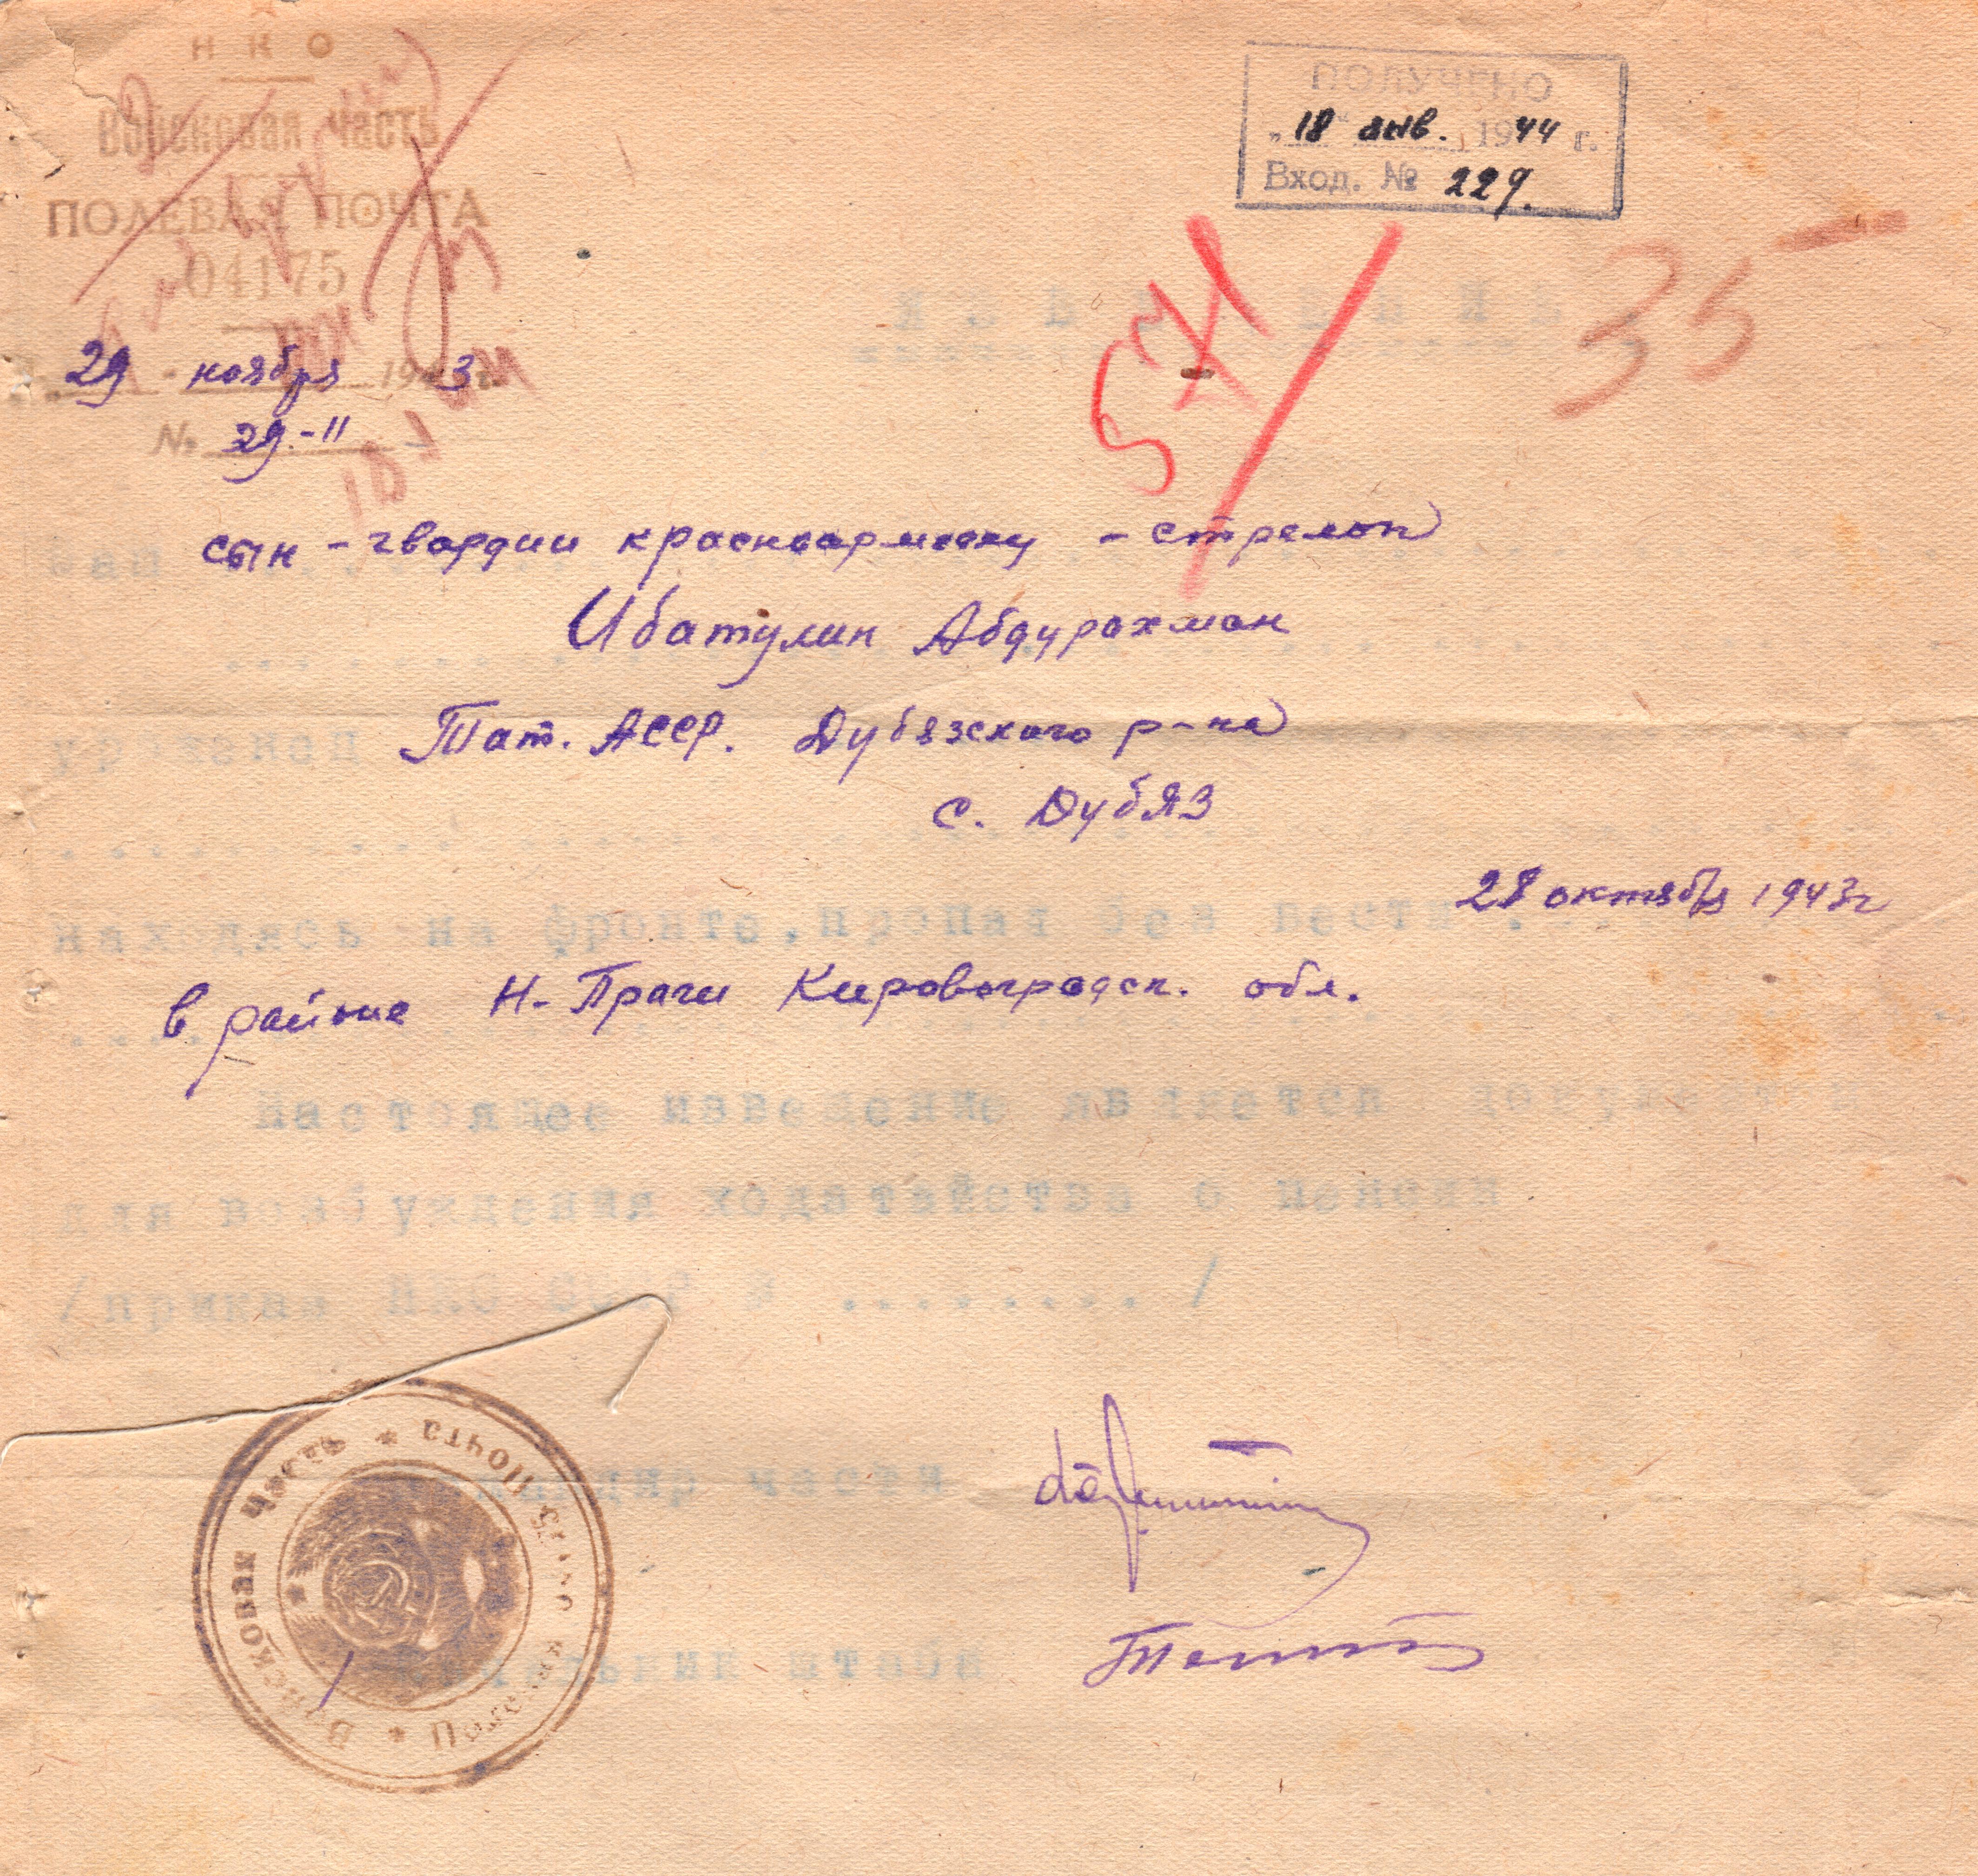 НКО
Войсковая часть
ПОЛЕВАЯ ПОЧТА
04175
29 ноября 1943 г.
№ 29-11
ПОЛУЧЕНО
„18“ янв. 1944 г.
Вход. № 229.
571
35
ИЗВЕЩЕНИЕ
Ваш сын - гвардии красноармеец - стрелок
Ибатулин Абдурахман
уроженец Тат. АССР. Дубязского р-на
с. Дубяз
находясь на фронте, пропал без вести 28 октября 1943г
в районе Н-Праги Кировоградск. обл.
Настоящее извещение является документом
для возбуждения ходатайства о пенсии
/приказ НКО СССР № ......... /
Командир части
Начальник штаба
Войсковая Часть * Полевая Почта *